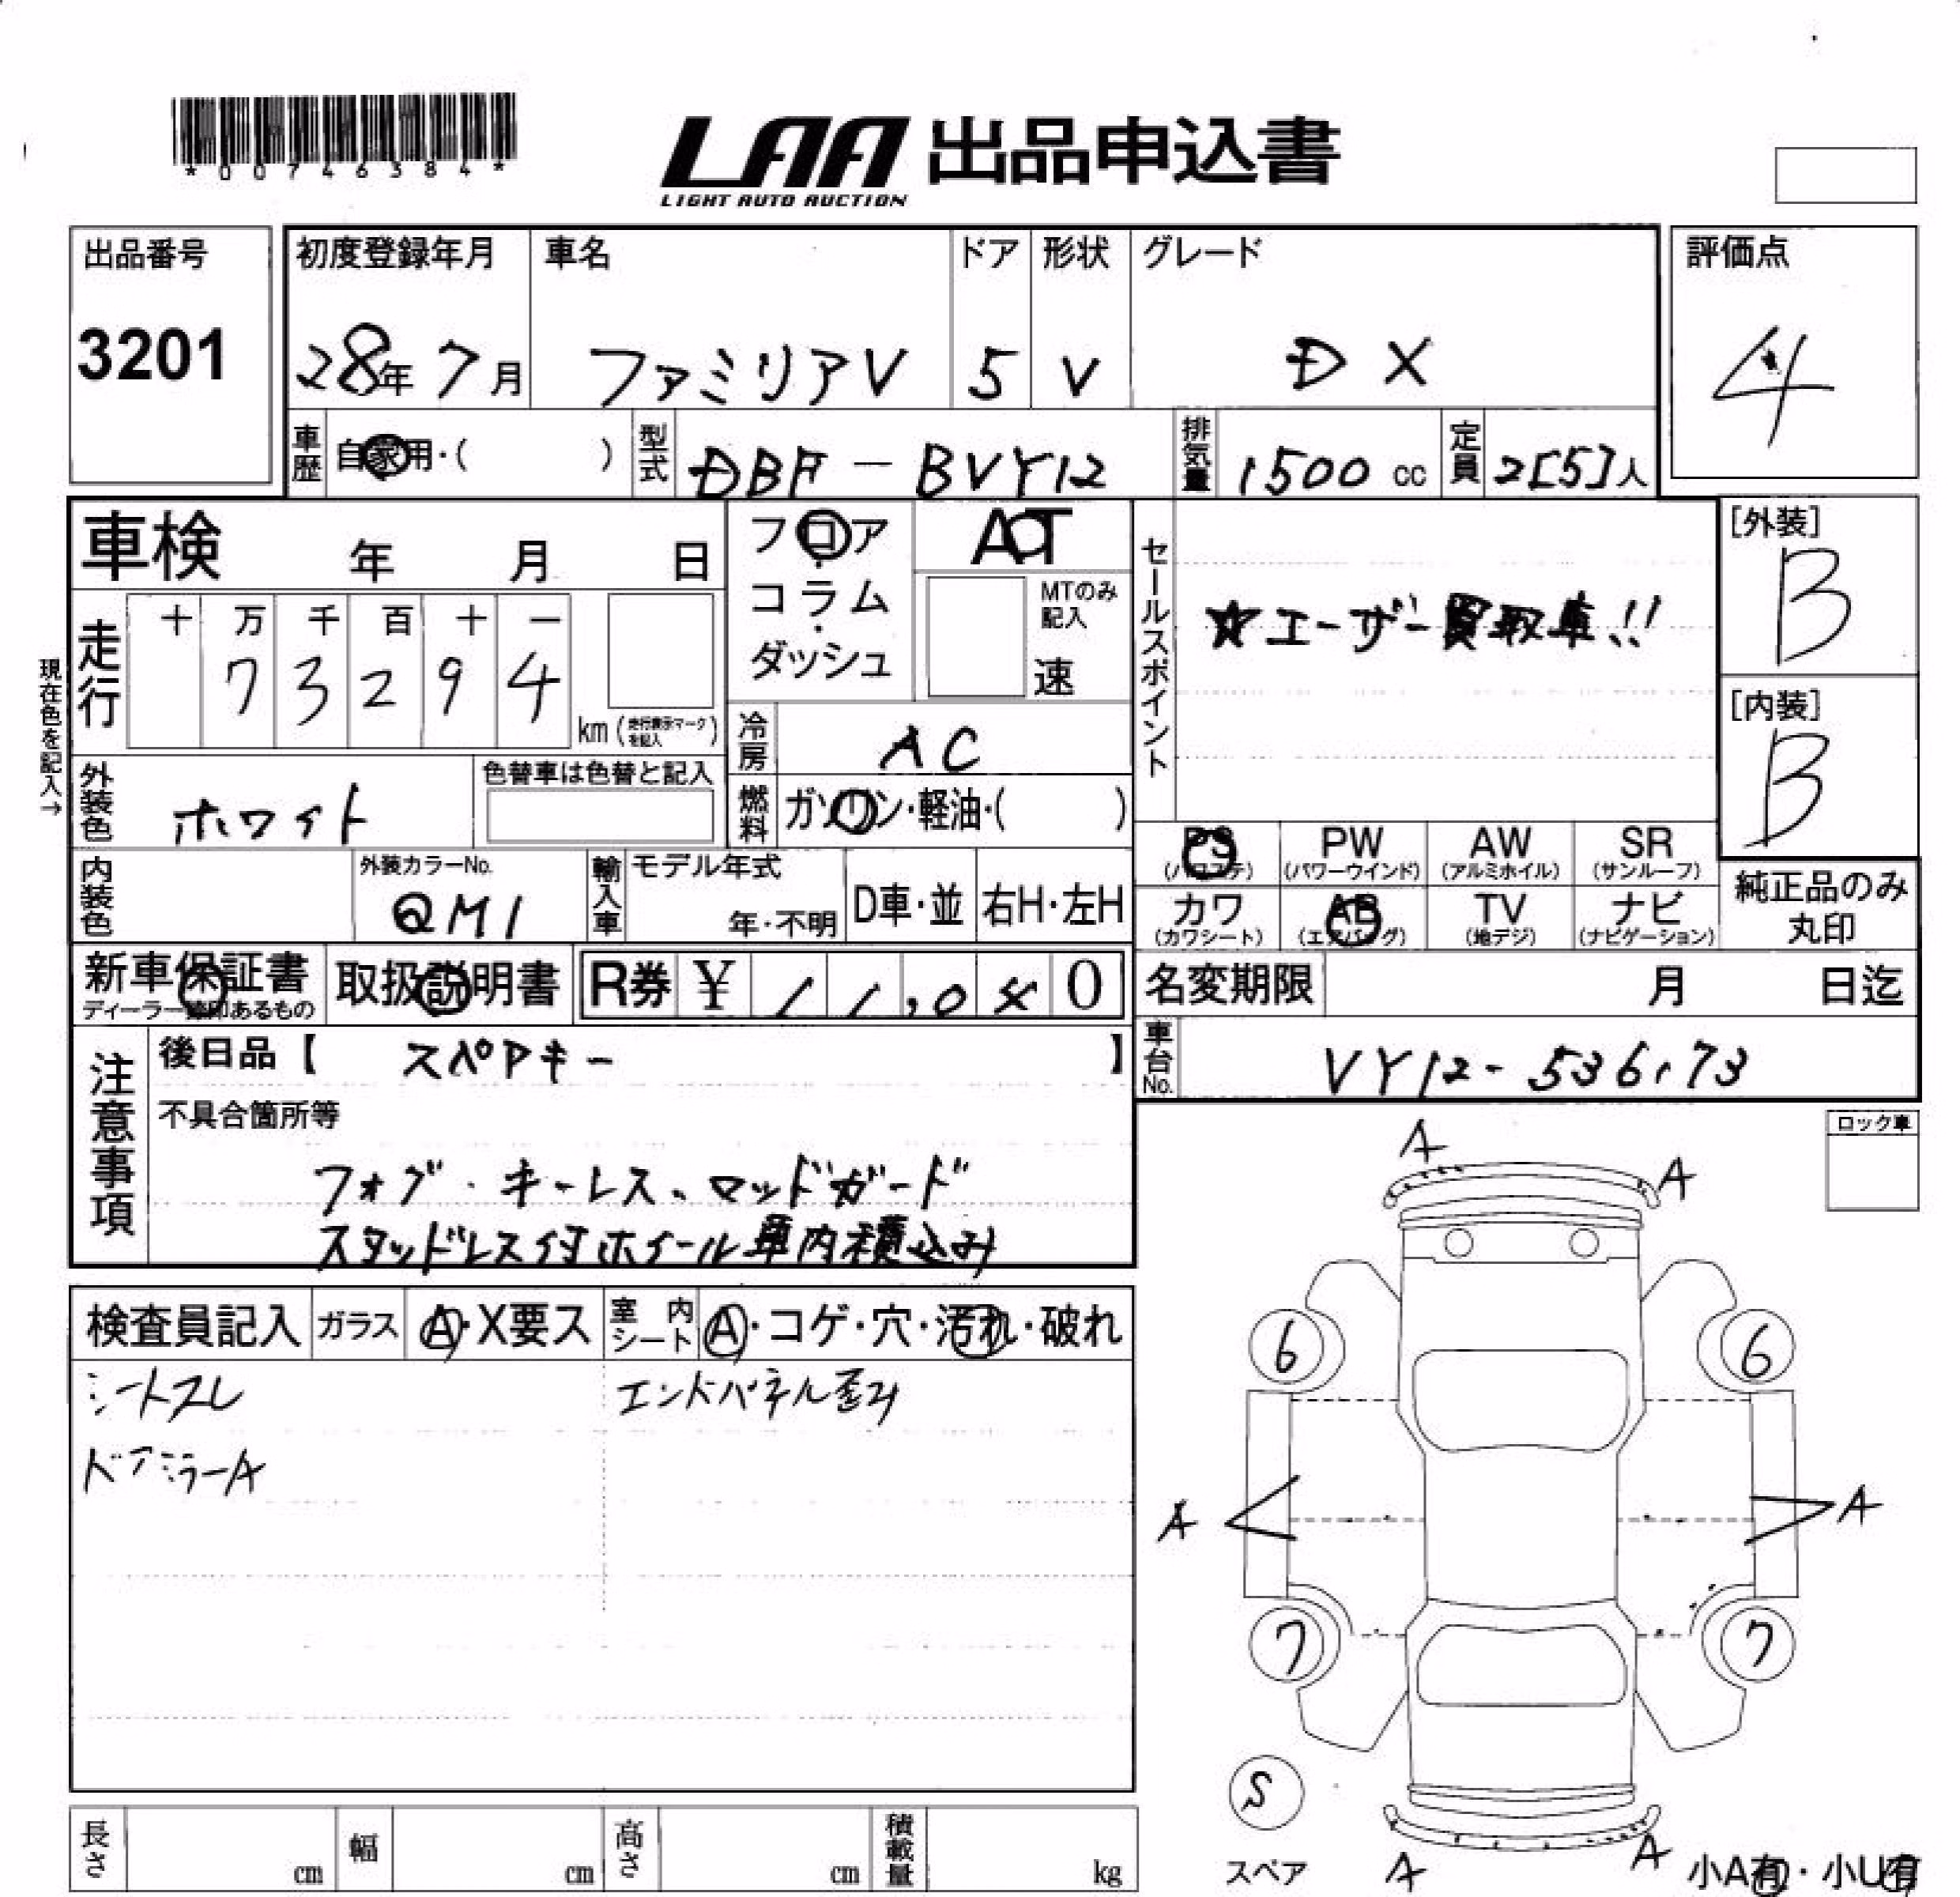 *00746384*
LAA 出品申込書
LIGHT AUTO AUCTION
出品番号
3201
初度登録年月
28年 7月
車名
ファミリアV
ドア
5
形状
V
グレード
DX
評価点
4
車歴
自家用・( )
型式
DBF-BVY12
排気量
1500 cc
定員
2[5]人
車検 年 月 日
フロア・コラム・ダッシュ
AT
MTのみ記入
速
セールスポイント
☆ユーザー買取車!!
[外装]
B
[内装]
B
現在色を記入→
走行
十 万 千 百 十 一
7 3 2 9 4
km (走行表示マークを記入)
冷房
AC
外装色
ホワイト
色替車は色替と記入
燃料
ガソリン・軽油・( )
PS
(パワステ)
PW
(パワーウインド)
AW
(アルミホイル)
SR
(サンルーフ)
内装色
外装カラーNo.
QM1
輸入車
モデル年式
年・不明
D車・並
右H・左H
カワ
(カワシート)
AB
(エアバッグ)
TV
(地デジ)
ナビ
(ナビゲーション)
純正品のみ丸印
新車保証書
ディーラー捺印あるもの
取扱説明書
R券 ¥ 11,040
名変期限 月 日迄
車台No.
VY12-536173
注意事項
後日品【 スペアキー 】
不具合箇所等
フォグ・キーレス、マッドガード
スタッドレス付ホイール車内積込み
ロック車
検査員記入
ガラス
A・X要ス
室内シート
A・コゲ・穴・汚れ・破れ
シートスレ
エンドパネル歪み
ドアミラーA
A
A
6
6
A
A
7
7
S
スペア
A
A
小A有・小U有
長さ cm
幅 cm
高さ cm
積載量 kg